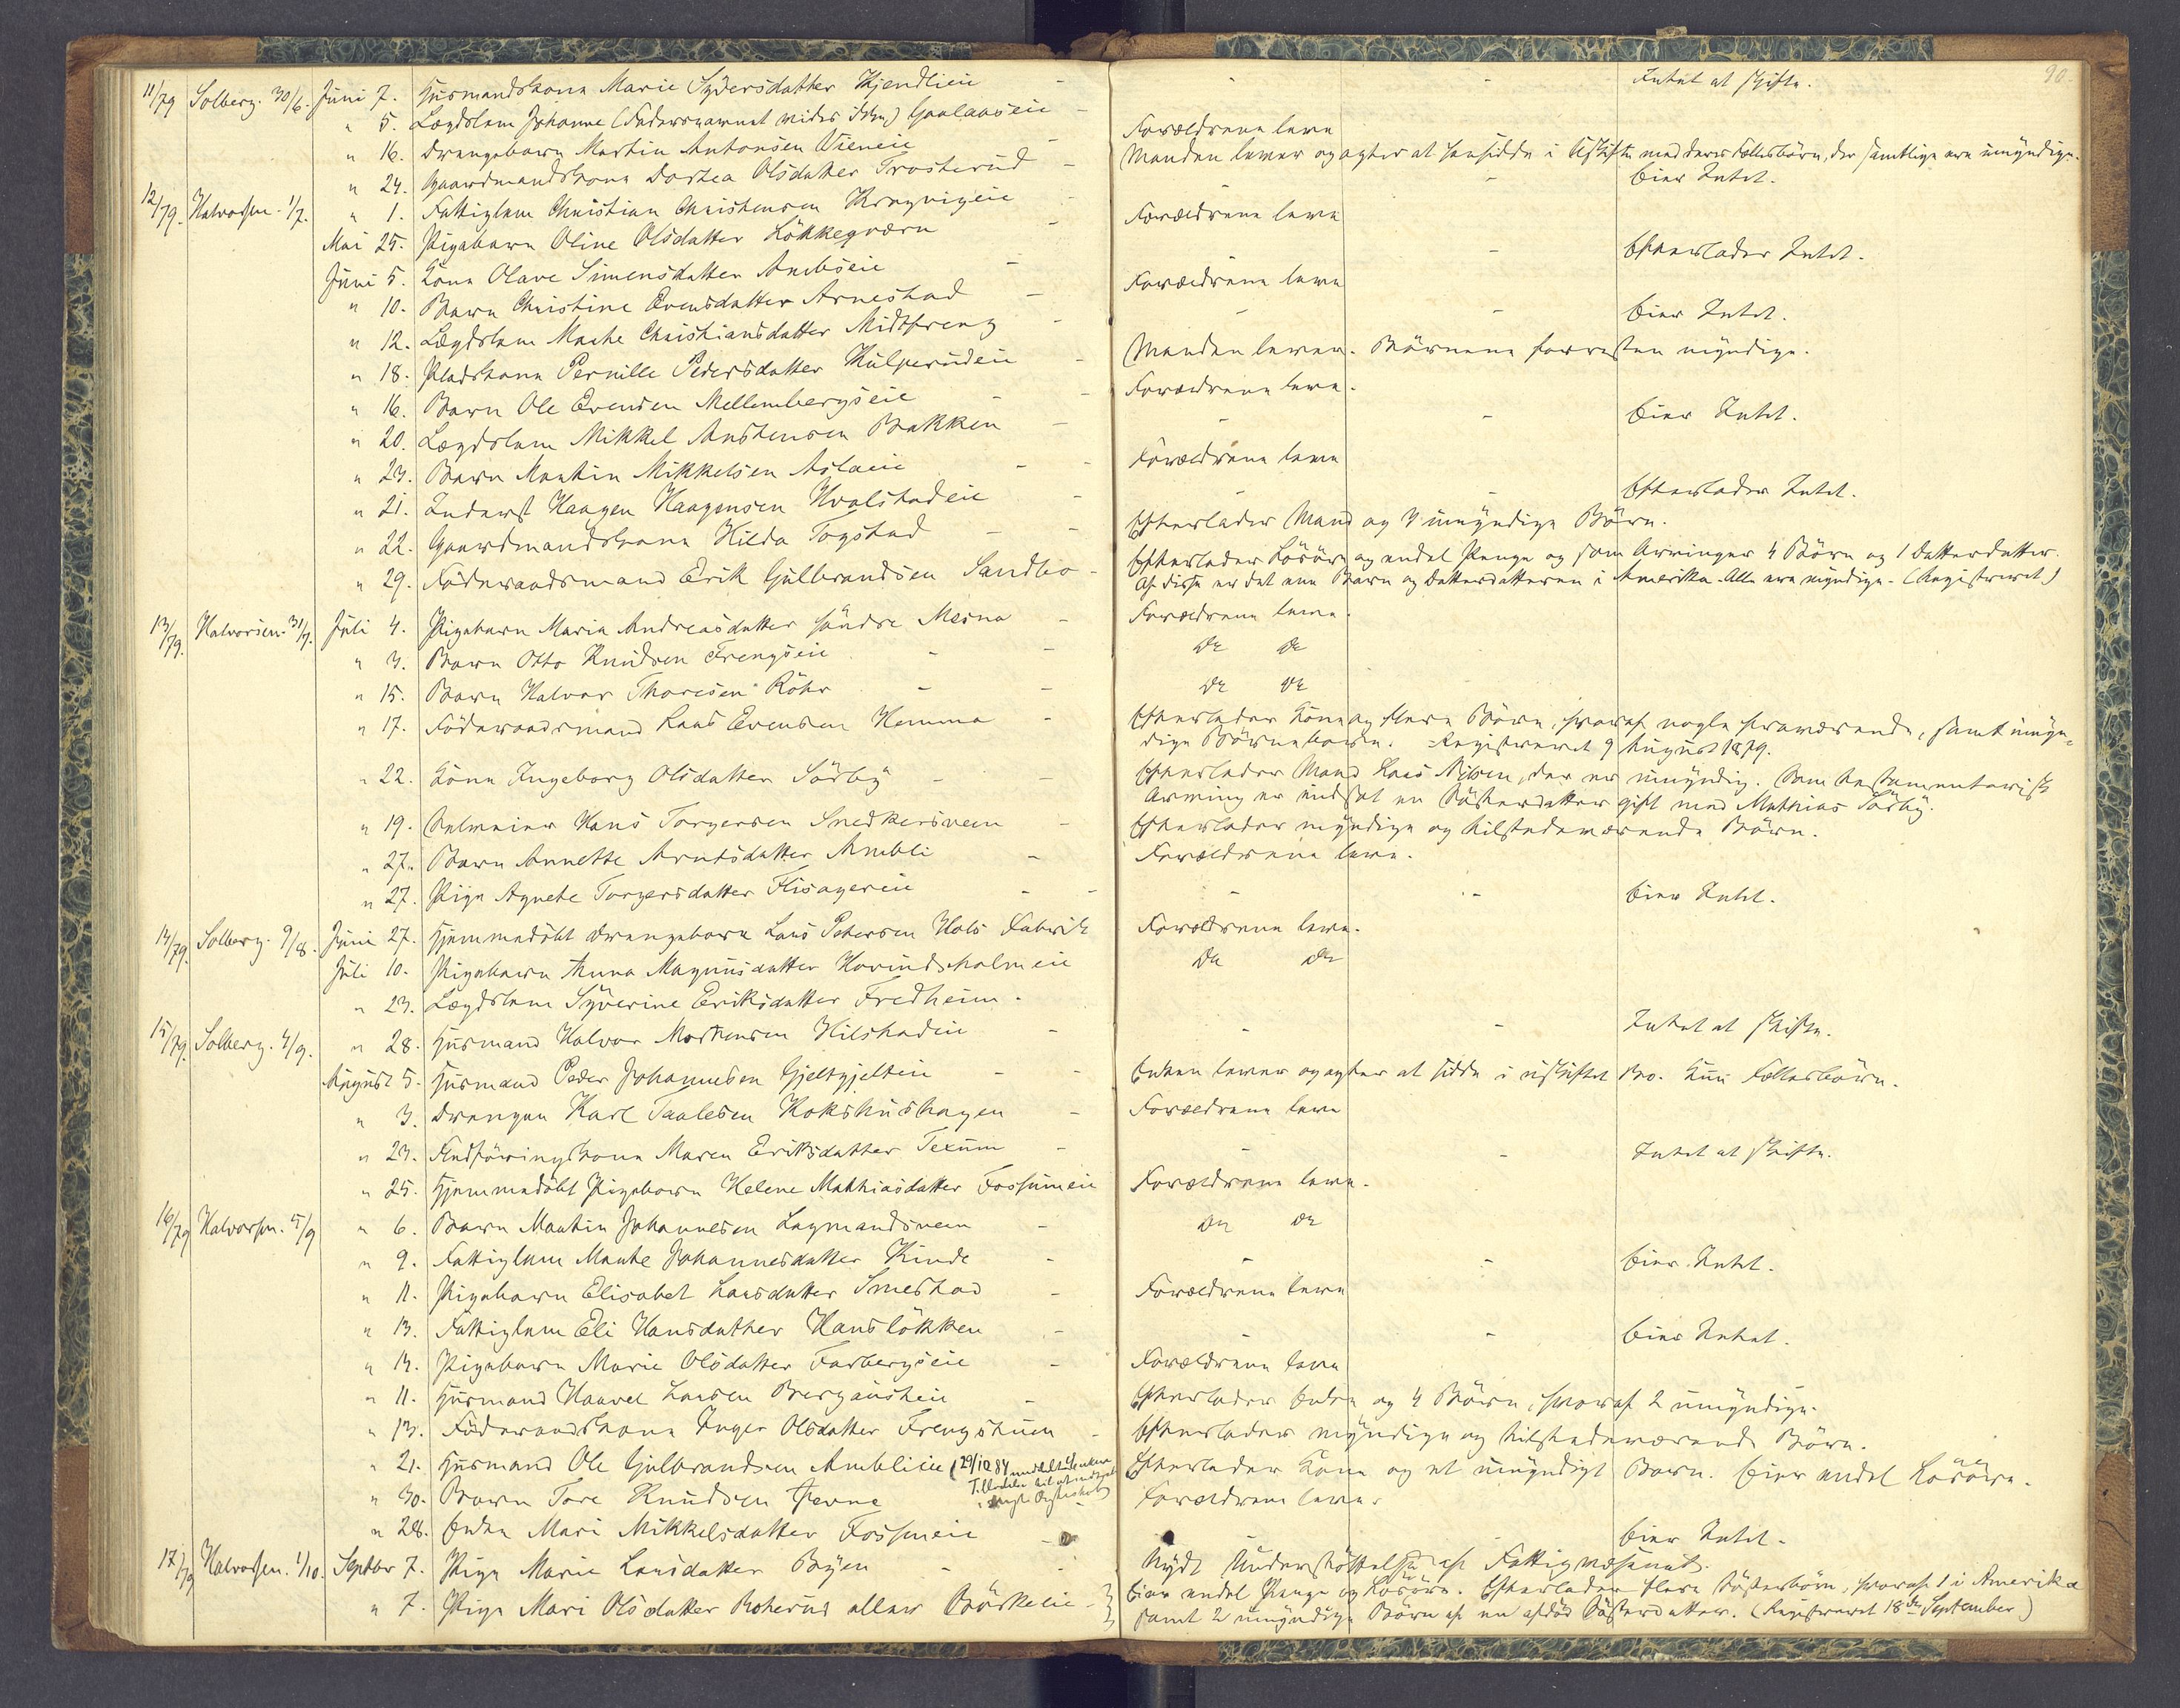 90.
11/79 Solberg. 30/6. Juni 7. Husmandskone Marie Sydersdatter Kjendlieie - - - Intet at skifte.
" 5. Lægdslem Johanne (Fadersnavnet vides ikke) Gaalaaseie -
" 16. Drengebarn Martin Antonsen Vieneie - Forældrene leve
" 24. Gaardmandskone Dorthea Olsdatter Trosterud - Manden lever og agter at hensidde i Uskifte med deres Fællesbørn, der samtlige ere umyndige.
12/79. Halvorsen. 1/7. " 1. Fattiglem Christian Christensen Krogvigeie - - - Eier Intet.
Mai 25. Pigebarn Oline Olsdatter Løkkeqværn - Forældrene leve
Juni 5. Kone Olave Simensdatter Anbliseie - - Efterlader Intet.
" 10. Barn Christine Evensdatter Arnestad - Forældrene leve
" 12. Lægdslem Marthe Christiansdatter Midtfreng - - - Eier Intet.
" 18. Pladskone Pernille Pedersdatter Hulperudeie - Manden lever. Børnene forresten myndige.
" 16. Barn Ole Evensen Mellembergseie - - Forældrene leve.
" 20. Lægdslem Mikkel Anstensen Bakken - - - Eier Intet.
" 23. Barn Martin Mikkelsen Aslaeie - - Forældrene leve
" 21. Inderst Haagen Haagensen Hvalstadeie - - - Efterlader Intet.
" 22. Gaardmandskone Hilda Togstad - - Efterlader Mand og 3 umyndige Børn.
" 29. Føderaadsmand Erik Gulbrandsen Sandbo - Efterlader Løsøre og endel Penge og som Arvinger 4 Børn og 1 Datterdatter.
Af disse er det ene Barn og Datterdatteren i Amerika. Alle ere myndige. (Registreret)
13/79. Halvorsen. 31/7. Juli 4. Pigebarn Maria Andreasdatter søndre Mesna - Forældrene leve.
" 3. Barn Otto Knudsen Frengseie - - Do Do
" 15. Barn Halvor Thoresen Røhr - - Do Do
" 17. Føderaadsmand Lars Evensen Hemma - Efterlader Kone og flere Børn, hvoraf nogle fraværende, samt umyn-
dige Børnebørn. Registreret 9 August 1879.
" 22. Kone Ingeborg Olsdatter Sørby - - Efterlader Mand Lars Nilsen, der er umyndig. Som testamentarisk
Arving er indsat en Søsterdatter gift med Mathias Sørby.
" 19. Selveier Hans Torgersen Snedkersveen - Efterlader myndige og tilstedeværende Børn.
" 27. Barn Annette Arntsdatter Anbli - Forældrene leve.
" 27. Pige Agnethe Torgersdatter Flisagereie - - - - Eier Intet.
14/79. Solberg. 9/8. Juni 27. Hjemmedøbt Drengebarn Lars Petersen Hols Fabrik Forældrene leve.
Juli 10. Pigebarn Anna Magnusdatter Hovindsholmeie Do Do
" 23. Lægdslem Syverine Eriksdatter Fredheim.
15/79. Solberg. 4/9. " 28. Husmand Halvor Mortensen Hilstadeie - - - Intet at skifte.
August 5. Husmand Peder Johannesen Gjeltgjelteie - - Enken lever og agter at sidde i uskiftet Bo. Kun Fællesbørn.
" 3. Drengen Karl Taalesen Kokshushagen - Forældrene leve
" 23. Indføringskone Maren Eriksdatter Texum - - - Intet at skifte.
" 25. Hjemmedøbt Pigebarn Helene Mathiasdatter Fossumeie Forældrene leve.
16/79 Halvorsen. 5/9 " 6. Barn Martin Johannesen Lagmandsveen - Do Do
" 9. Fattiglem Marthe Johannesdatter Kinde - - - Eier Intet.
" 11. Pigebarn Elisabet Larsdatter Smestad - Forældrene leve
" 13. Fattiglem Eli Hansdatter Hansløkken - - - Eier Intet.
" 13. Pigebarn Marie Olsdatter Farbergseie - Forældrene leve
" 11. Husmand Haavel Larsen Bergauneie - Efterlader Enke og 4 Børn, hvoraf 2 umyndige.
" 13. Føderaadskone Inger Olsdatter Frengstuen - Efterlader myndige og tilstedeværende Børn.
" 21. Husmand Ole Gulbrandsen Anblieie (29/10 84 meddelt Enken Tilladelse til at indgaa i nyt Ægteskab) Efterlader Kone og et umyndigt Barn. Eier endel Løsøre.
" 30. Barn Tore Knudsen Jevne - Forældrene leve.
" 28. Enke Mari Mikkelsdatter Fossumeie - - Eier Intet.
17/79 Halvorsen. 1/10. Septbr 7. Pige Marie Larsdatter Byen - - Nydt Understøttelse af Fattigvæsenet.
" 7. Pige Mari Olsdatter Roterud eller Børkeeie - Eier endel Penge og Løsøre. Efterlader flere Søsterbørn, hvoraf 1 i Amerika
samt 2 umyndige Børn af en afdød Søsterdatter. (Registreret 18de September)